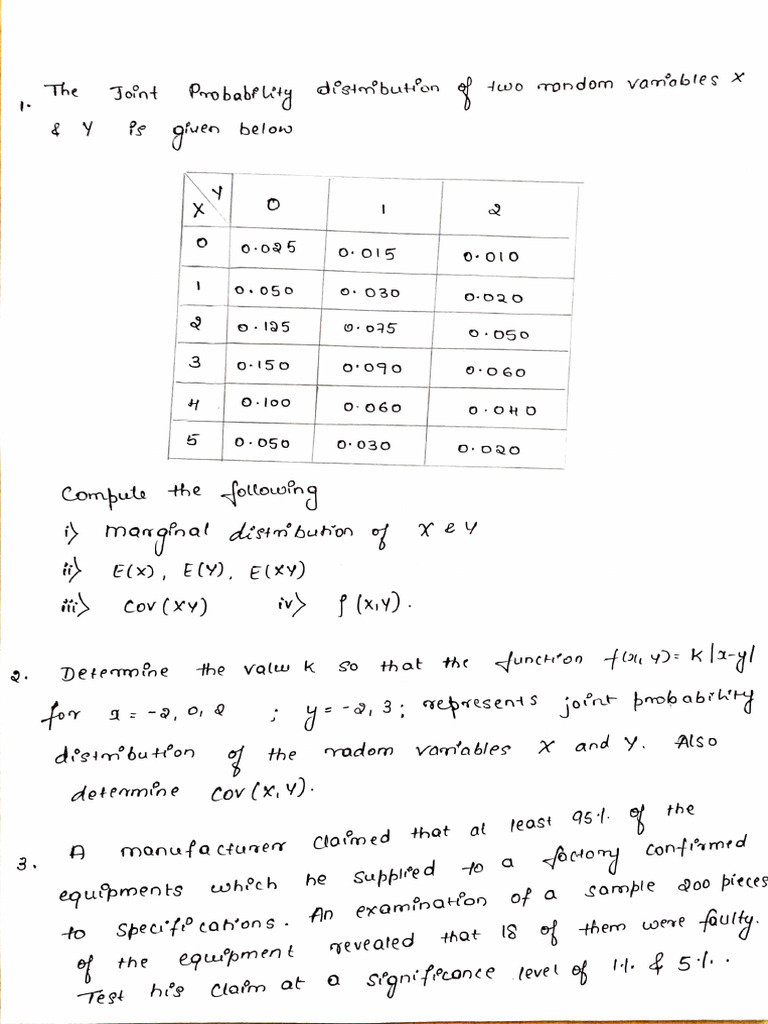 1. The Joint Probability distribution of two random variables X
& Y is given below
X Y 0 1 2
0 0.025 0.015 0.010
1 0.050 0.030 0.020
2 0.125 0.075 0.050
3 0.150 0.090 0.060
4 0.100 0.060 0.040
5 0.050 0.030 0.020
Compute the following
i) marginal distribution of X & Y
ii) E(X), E(Y), E(XY)
iii) COV(XY) iv) ρ(X,Y).
2. Determine the value k so that the function f(x,y)=K|x-y|
for x=-2,0,2 ; y=-2,3; represents joint probability
distribution of the radom variables X and Y. Also
determine COV(X,Y).
3. A manufacturer claimed that at least 95% of the
equipments which he supplied to a factory confirmed
to specifications. An examination of a sample 200 pieces
of the equipment revealed that 18 of them were faulty.
Test his claim at a significance level of 1% & 5%.